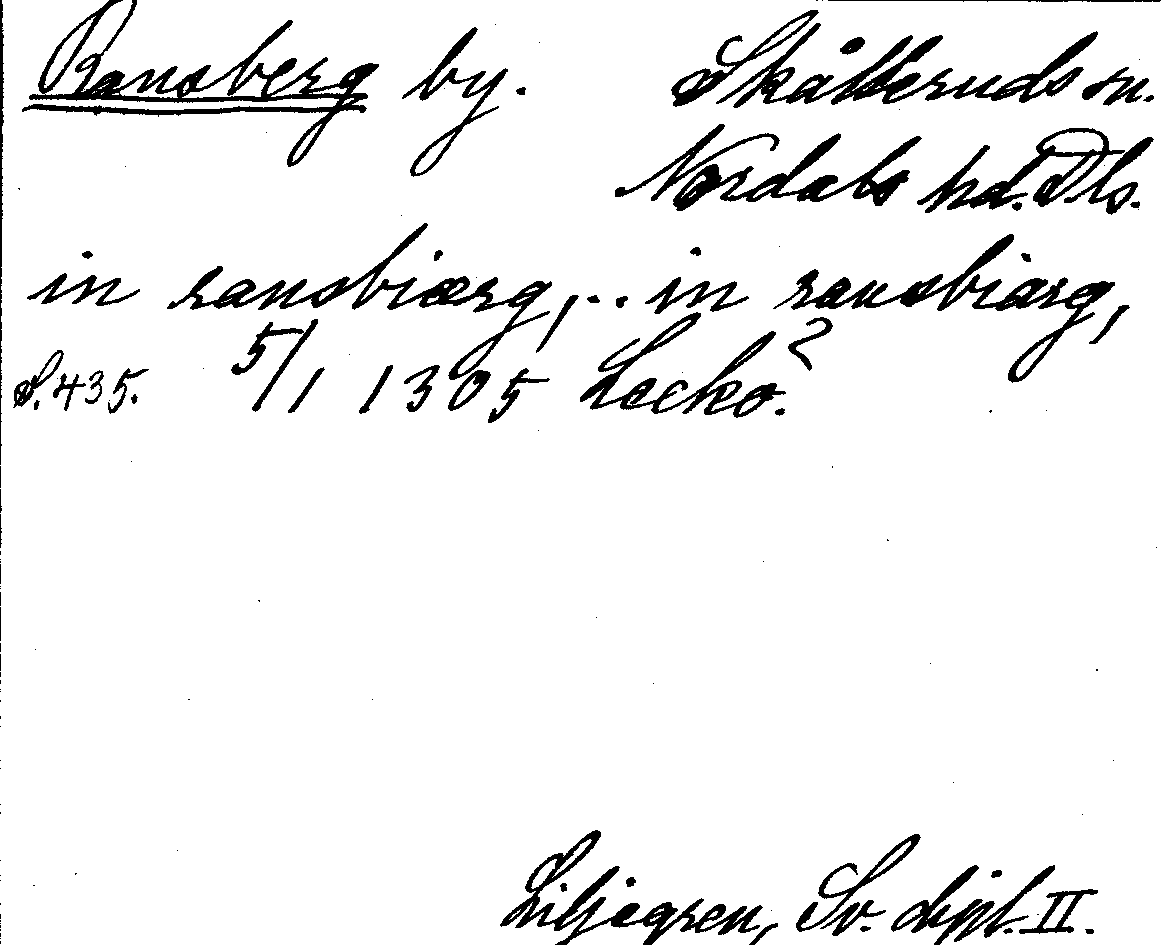 Ransberg by. Skålleruds sn.
Nordals hd. Dls.
in ransbiærg, .. in ransbiærg,
S. 435. 5/1 1305 Lecko?
Liljegren, Sv. dipl. II.